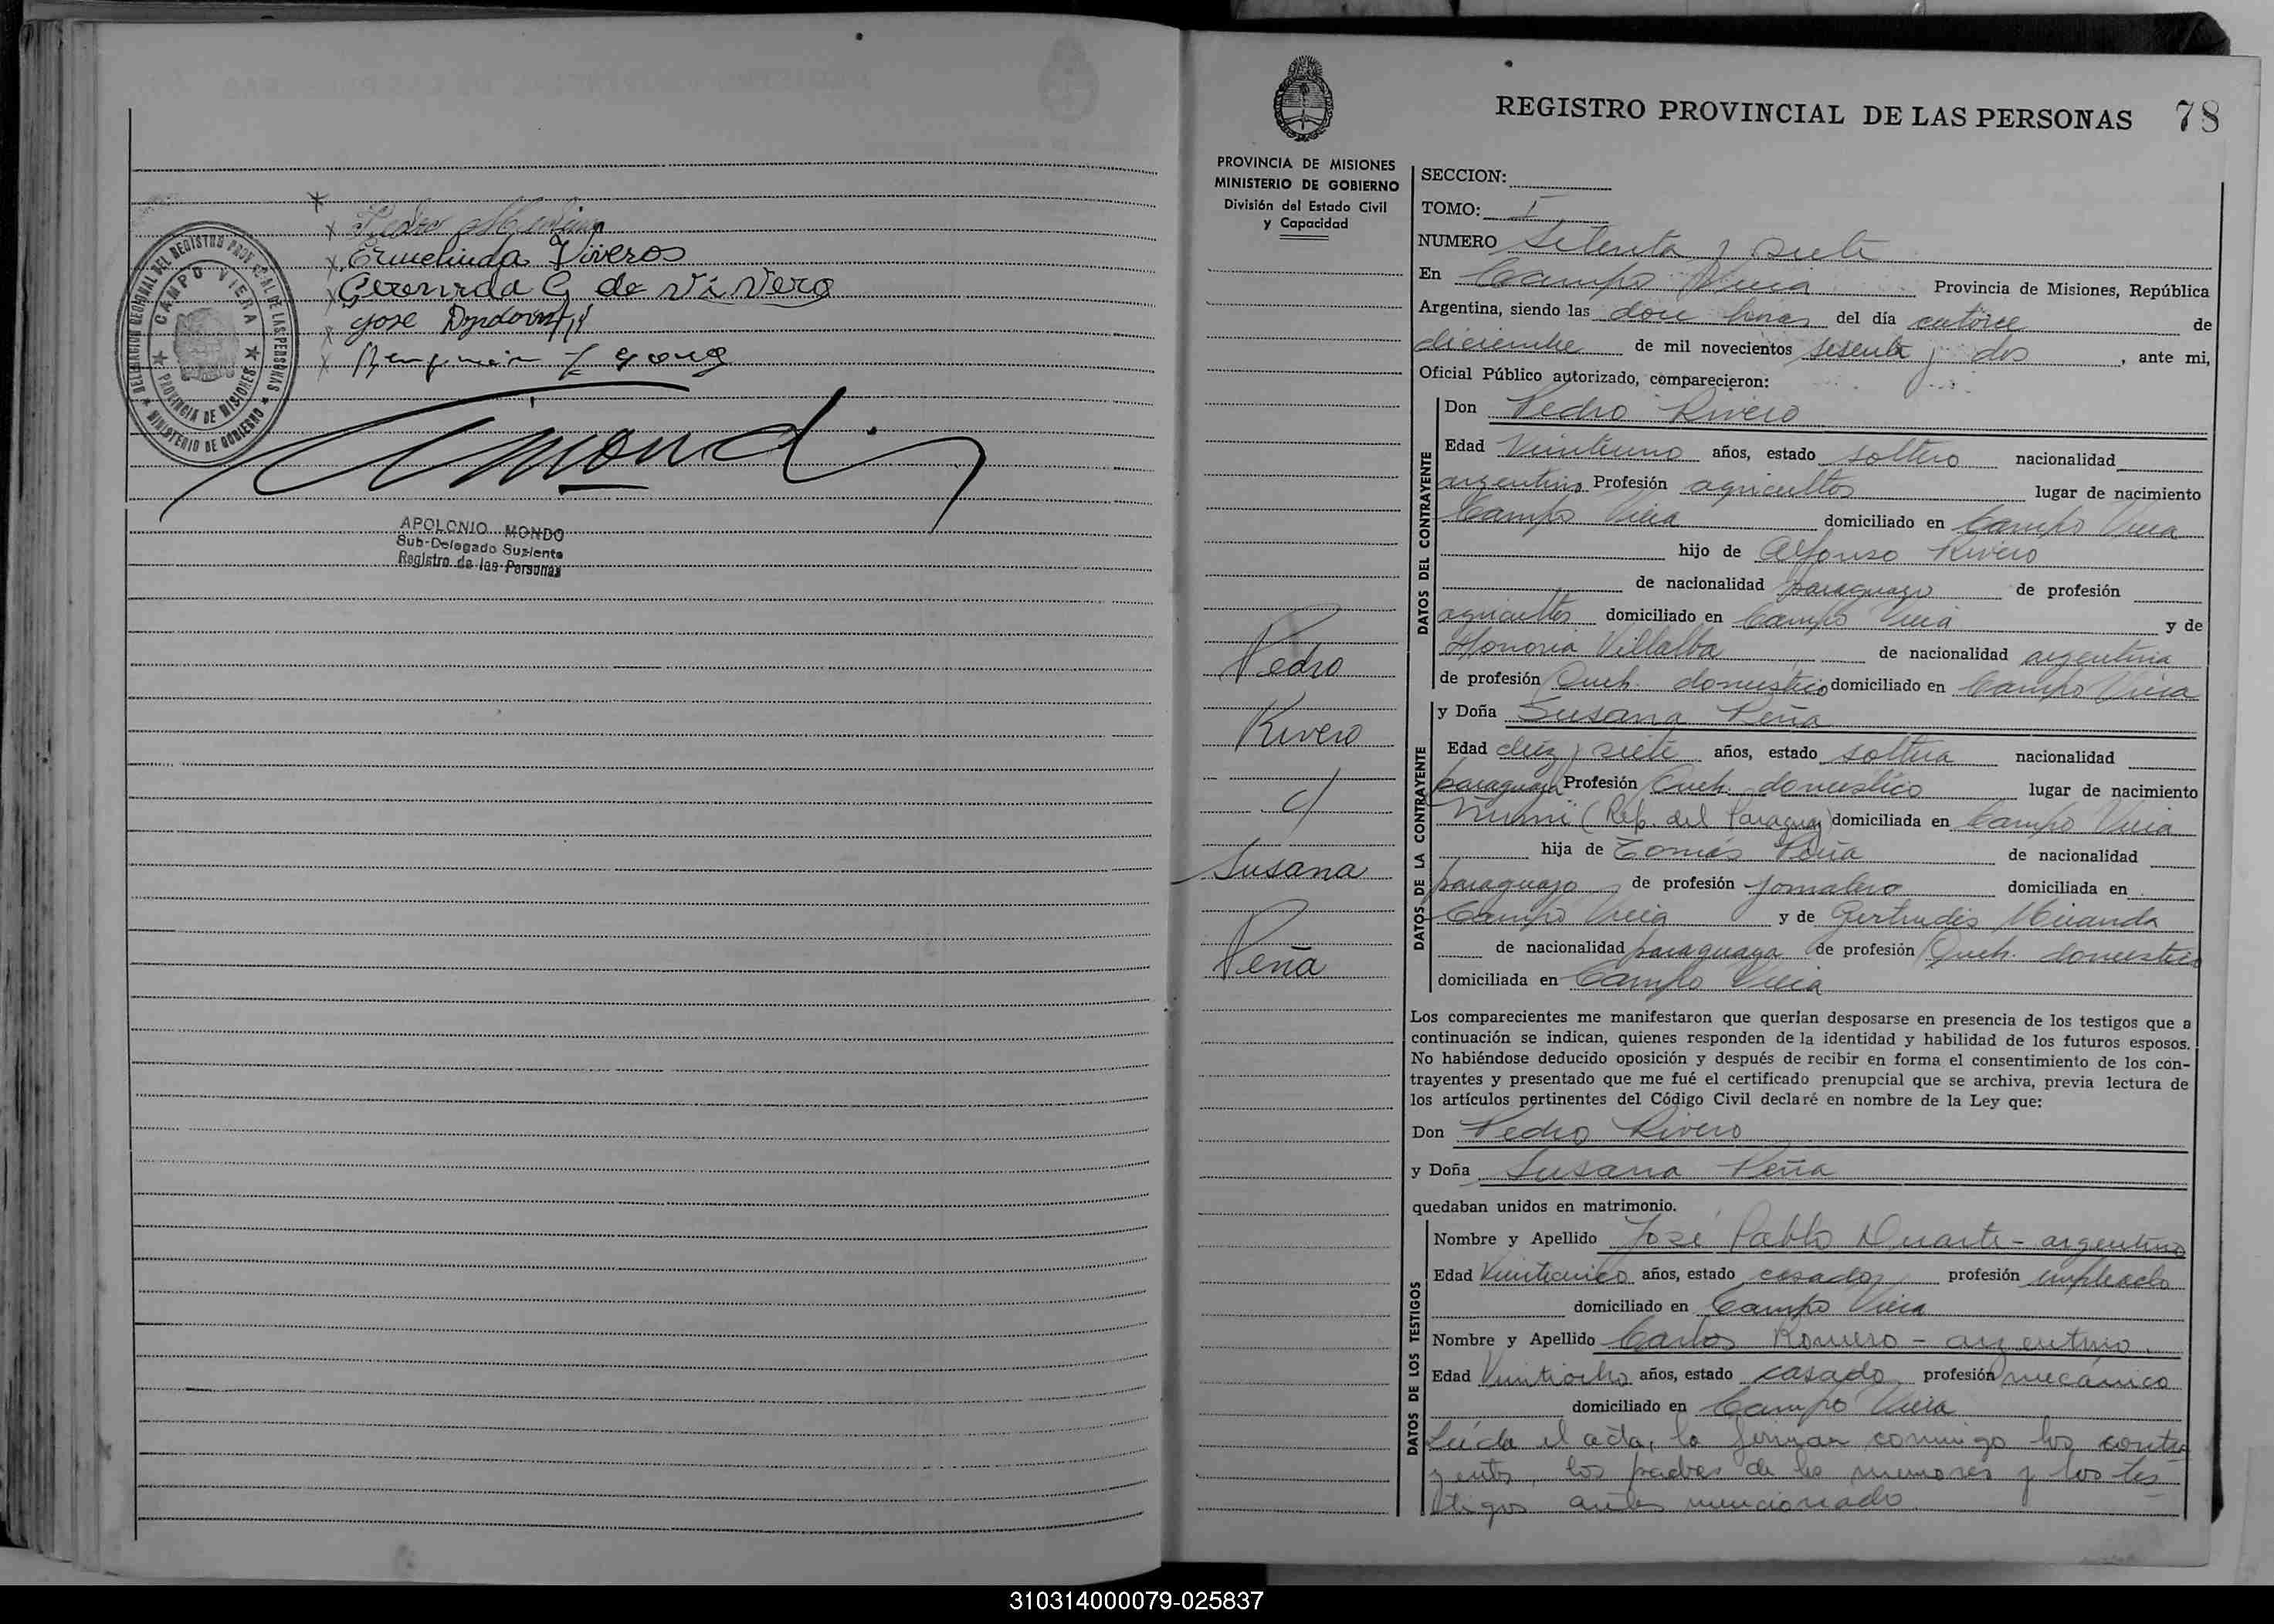 Ermelinda Viveros
de
Jose
DELEGACION REGIONAL DEL REGISTRO PROVINCIAL DE LAS PERSONAS
CAMPO VIERA
PROVINCIA DE MISIONES
MINISTERIO DE GOBIERNO
APOLONIO MONDO
Sub-Delegado Suplente
Registro de las Personas
REGISTRO PROVINCIAL DE LAS PERSONAS 78
PROVINCIA DE MISIONES
MINISTERIO DE GOBIERNO
División del Estado Civil
y Capacidad
Pedro
Rivero
c/
Susana
Peña
SECCION:
TOMO: I
NUMERO Setenta y siete
En Campo Viera Provincia de Misiones, República
Argentina, siendo las doce horas del día catorce de
diciembre de mil novecientos sesenta y dos, ante mi,
Oficial Público autorizado, comparecieron:
DATOS DEL CONTRAYENTE
Don Pedro Rivero
Edad Veintiuno años, estado soltero nacionalidad
argentino Profesión agricultor lugar de nacimiento
Campo Viera domiciliado en Campo Viera
hijo de Alfonso Rivero
de nacionalidad paraguayo de profesión
agricultor domiciliado en Campo Viera y de
Honoria Villalba de nacionalidad argentina
de profesión Queh. domestico domiciliado en Campo Viera
DATOS DE LA CONTRAYENTE
y Doña Susana Peña
Edad diez y siete años, estado soltera nacionalidad
paraguaya Profesión Queh. domestico lugar de nacimiento
(Rep. del Paraguay) domiciliada en Campo Viera
hija de Tomás Peña de nacionalidad
paraguayo de profesión Jornalero domiciliada en
Campo Viera y de Gertrudis Miranda
de nacionalidad paraguaya de profesión Queh. domestico
domiciliada en Campo Viera
Los comparecientes me manifestaron que querían desposarse en presencia de los testigos que a
continuación se indican, quienes responden de la identidad y habilidad de los futuros esposos.
No habiéndose deducido oposición y después de recibir en forma el consentimiento de los con-
trayentes y presentado que me fué el certificado prenupcial que se archiva, previa lectura de
los artículos pertinentes del Código Civil declaré en nombre de la Ley que:
Don Pedro Rivero
y Doña Susana Peña
quedaban unidos en matrimonio.
DATOS DE LOS TESTIGOS
Nombre y Apellido José Pablo Duarte - argentino
Edad Veinticinco años, estado casado profesión empleado
domiciliado en Campo Viera
Nombre y Apellido Carlos Romero - argentino.
Edad Veintiocho años, estado casado profesión mecánico
domiciliado en Campo Viera
Leída el acta, la firman conmigo los contra
yentes, los padres de los menores y los tes
tigos antes mencionado.
310314000079-025837